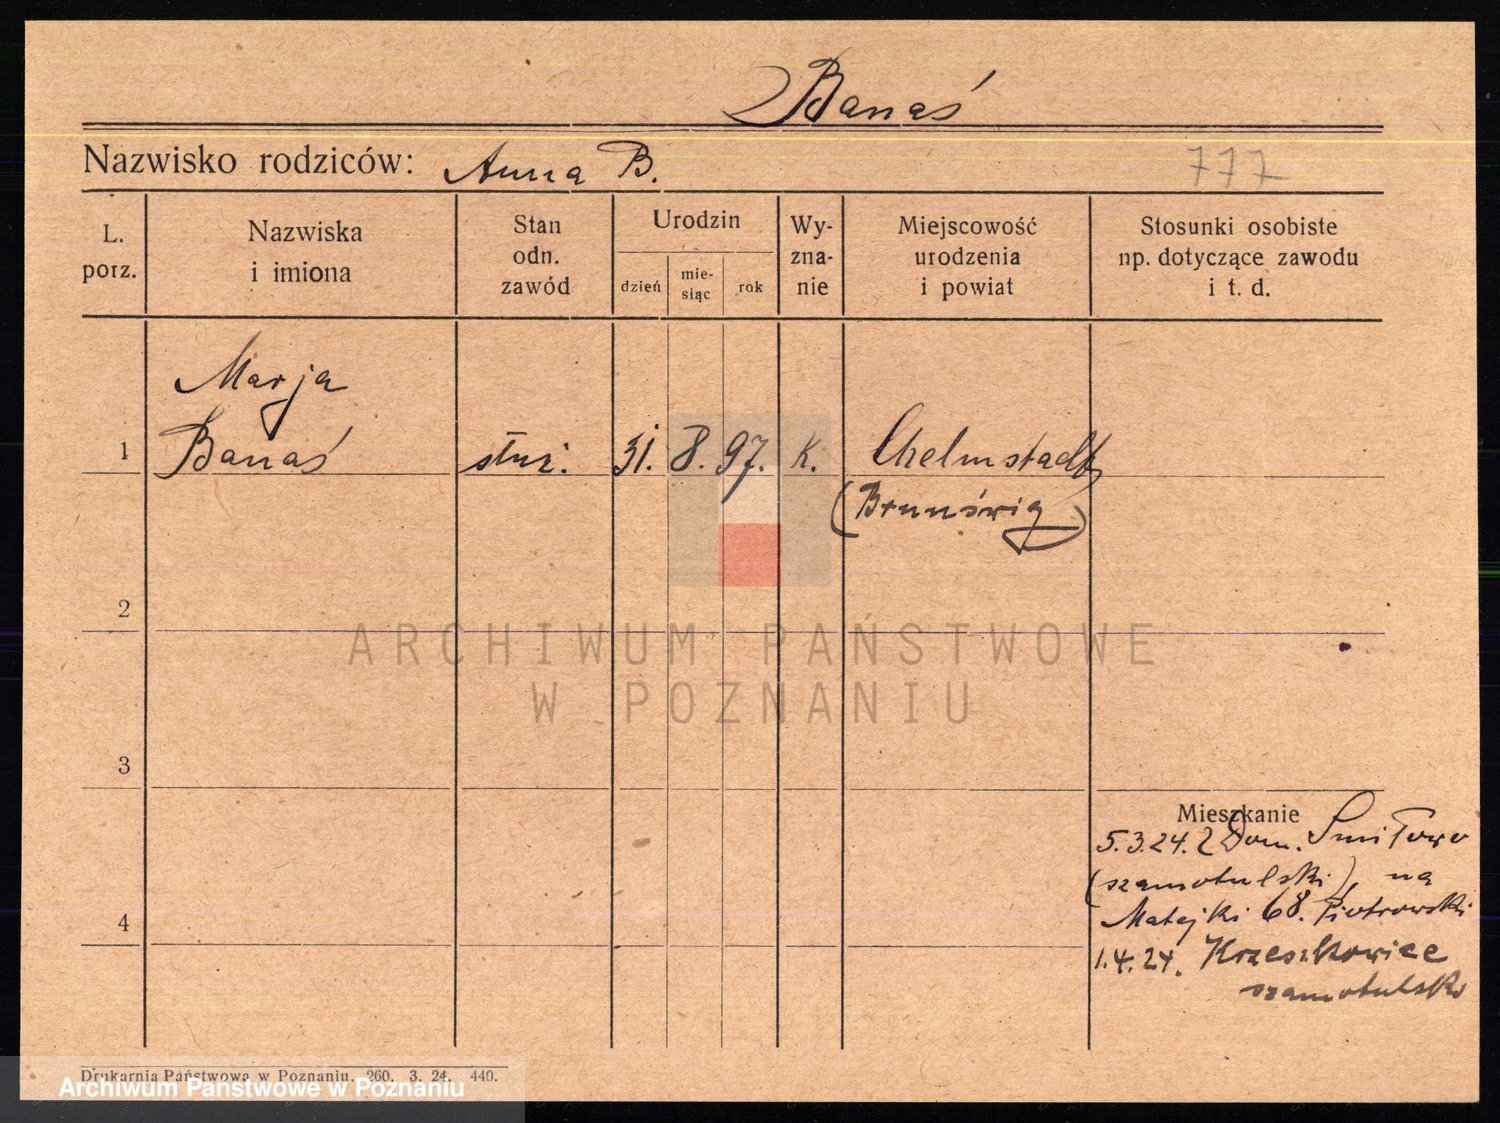 Banaś
Nazwisko rodziców: Anna B.
777
L. porz.
Nazwiska i imiona
Stan odn. zawód
Urodzin
dzień
mie-siąc
rok
Wy-zna-nie
Miejscowość urodzenia i powiat
Stosunki osobiste np. dotyczące zawodu i t. d.
Marja
1 Banaś służ. 31. 8. 97. k. Chelmstadt
(Brunświg)
2
3
4
Mieszkanie
5.3.24. z Dom. Smiłowo
(szamotulski) na
Matejki 68. Piotrowski.
1.4.24. Krzeszkowice
szamotulsko
ARCHIWUM PAŃSTWOWE
W POZNANIU
Drukarnia Państwowa w Poznaniu. 260. 3. 24. 440.
Archiwum Państwowe w Poznaniu